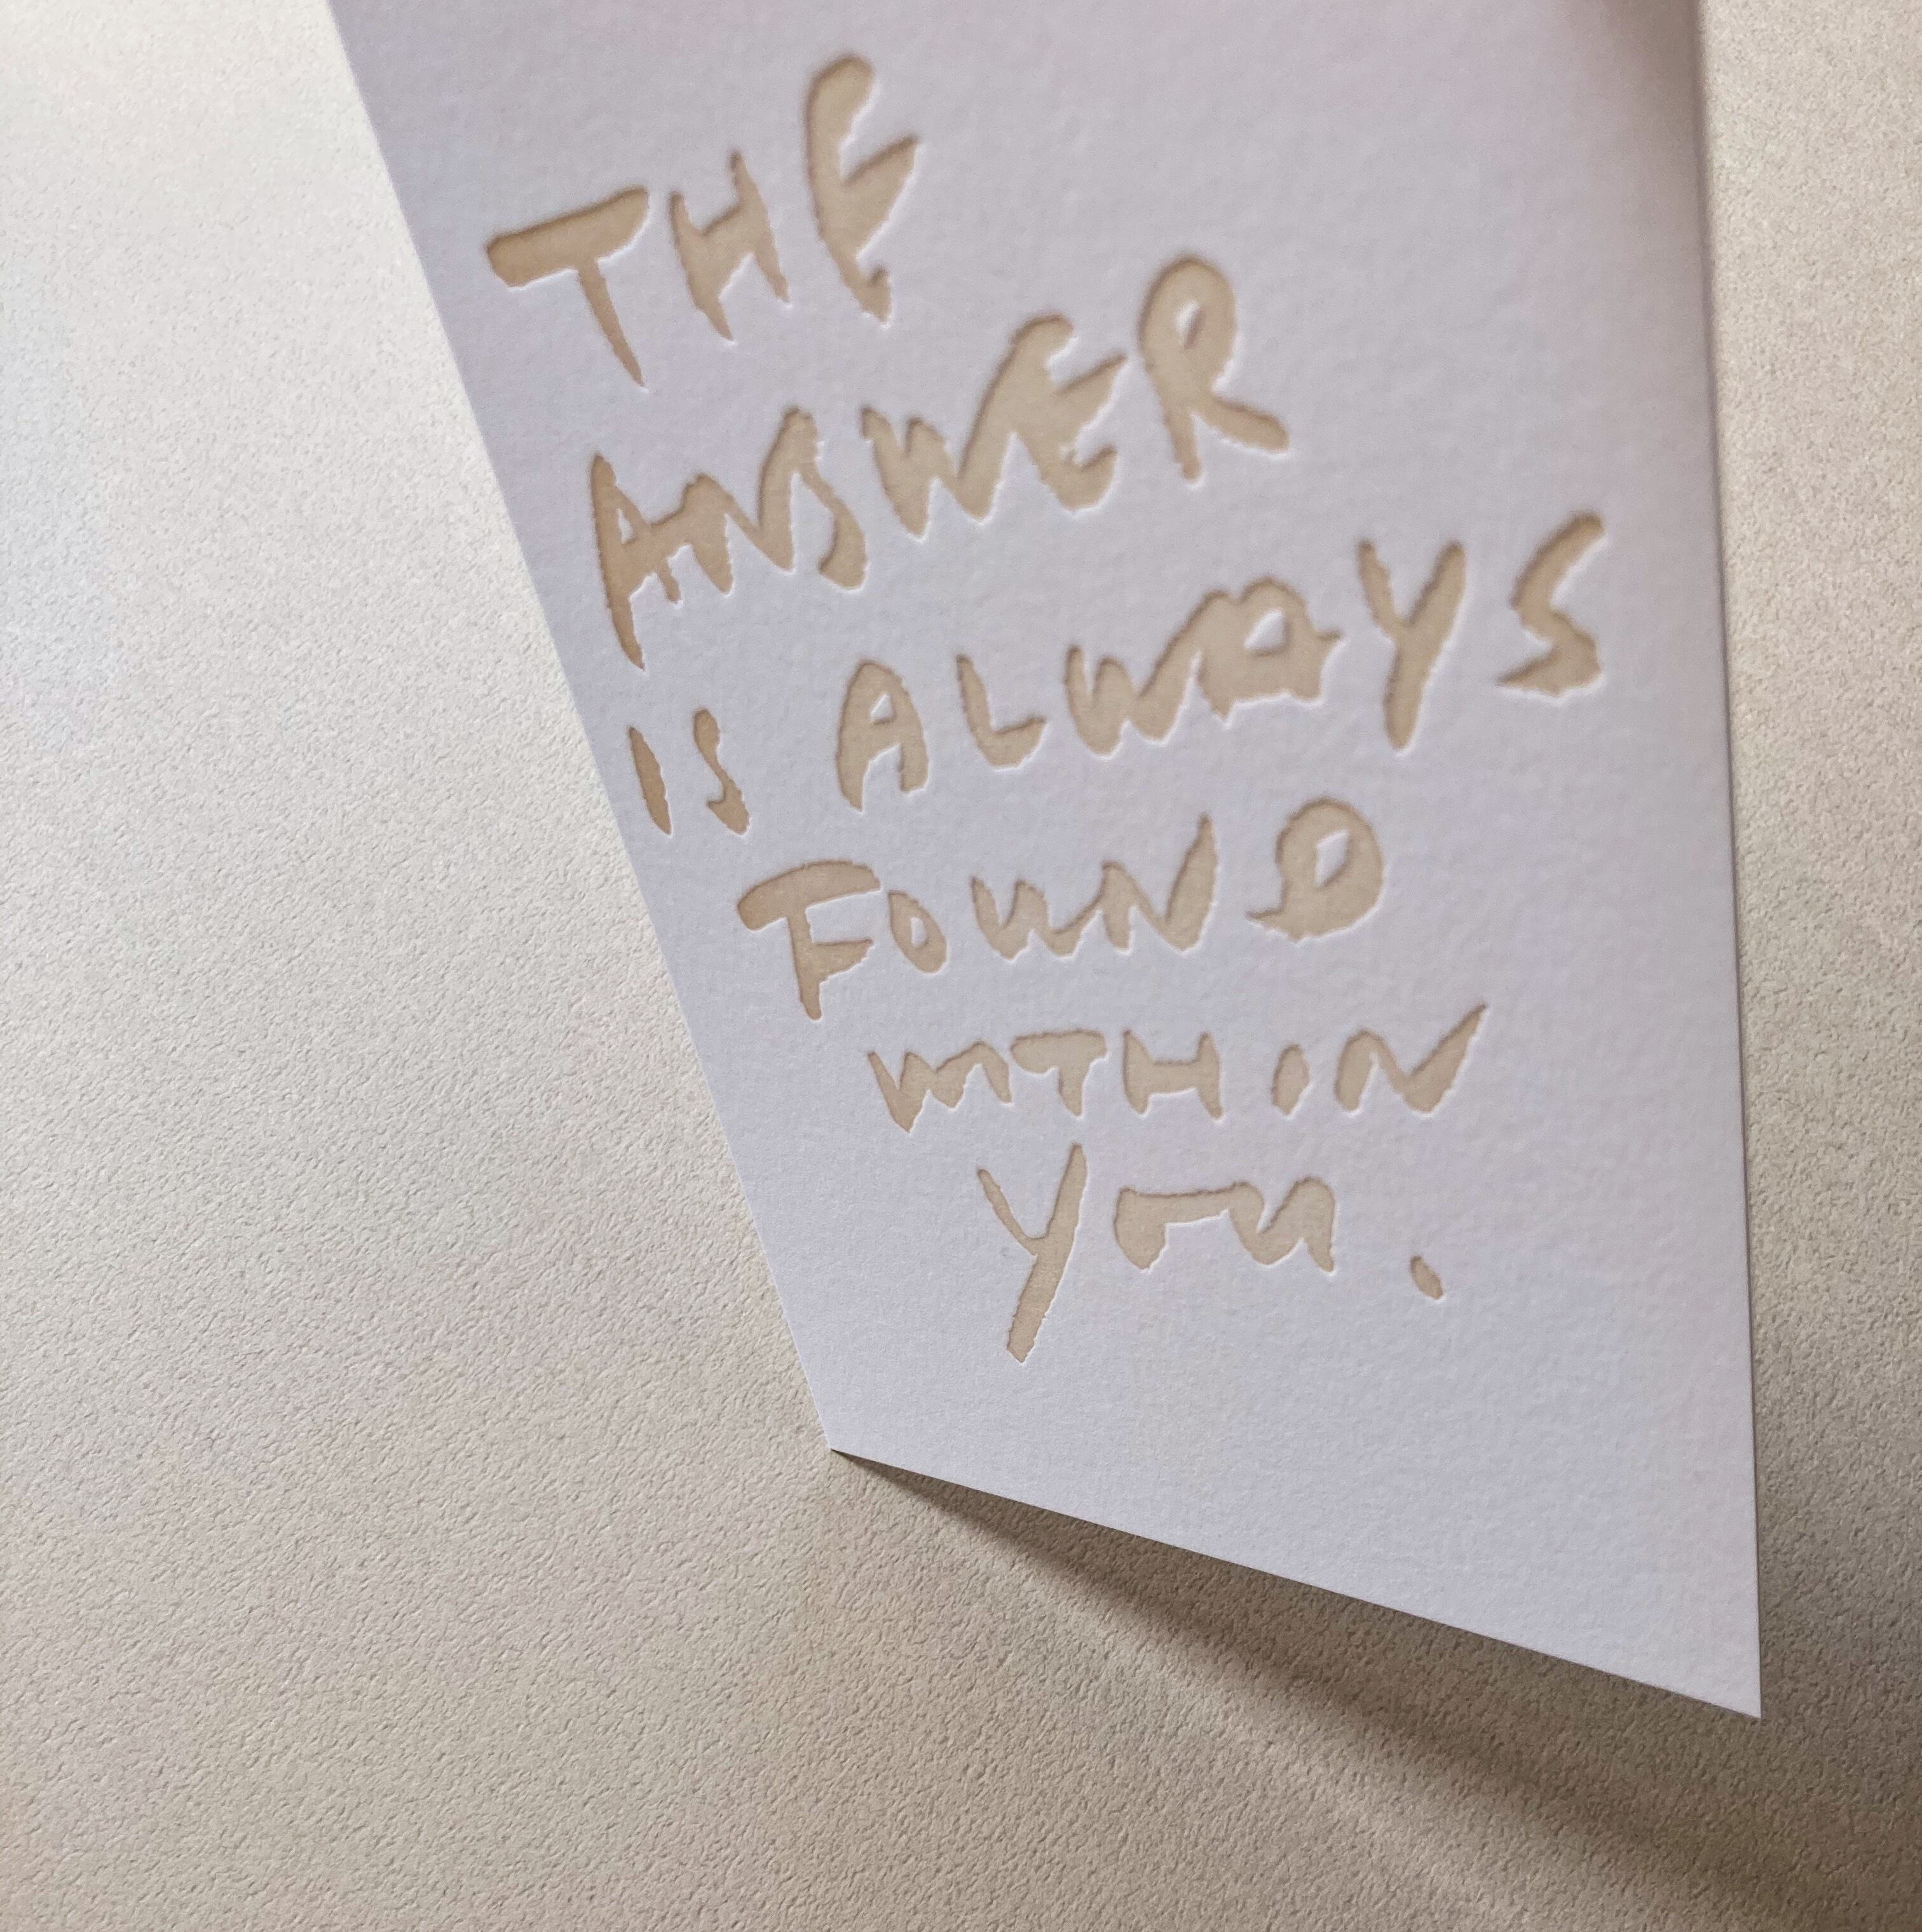 THE
ANSWER
IS ALWAYS
FOUND
WITHIN
YOU.